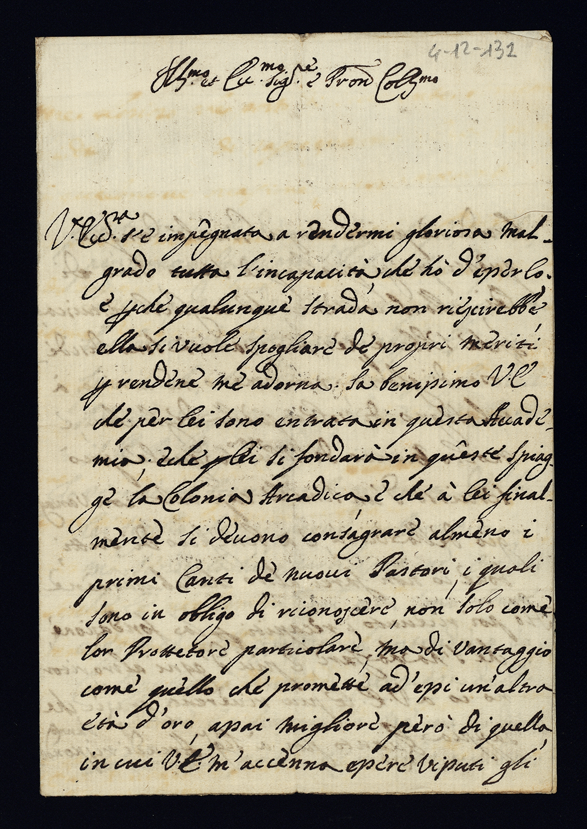 4-12-132
Ill.mo et Ecc.mo Sig.re e Pron Coll.mo
V. Ecc.za s'è impegnata a rendermi gloriosa mal-
grado tutta l'incapacità che hò d'esserlo.
e pche qualunque strada non riescirebbe
ella si vuole spogliare de propri meriti
p renderne me adorna. sa benissimo V.E
che per lei sono entrata in questa Accade-
mia, e che p lei si fondarà in queste spiag-
ge la Colonia Arcadica e che à lei final-
mente si devono consagrare almeno i
primi Canti de nuovi Pastori, i quali
sono in obligo di riconoscere, non solo come
lor Prottetore particolare, ma di vantaggio
come quello che promette ad'essi un'altra
età d'oro, assai migliore però di quella
in cui V.E. m'accenna essere vissuti gli